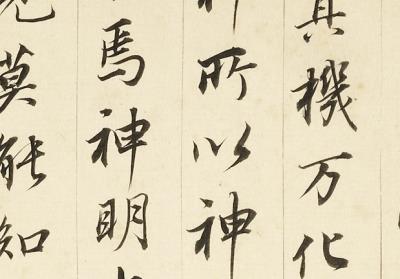 其機万化
神所以神
焉神明
見莫能知